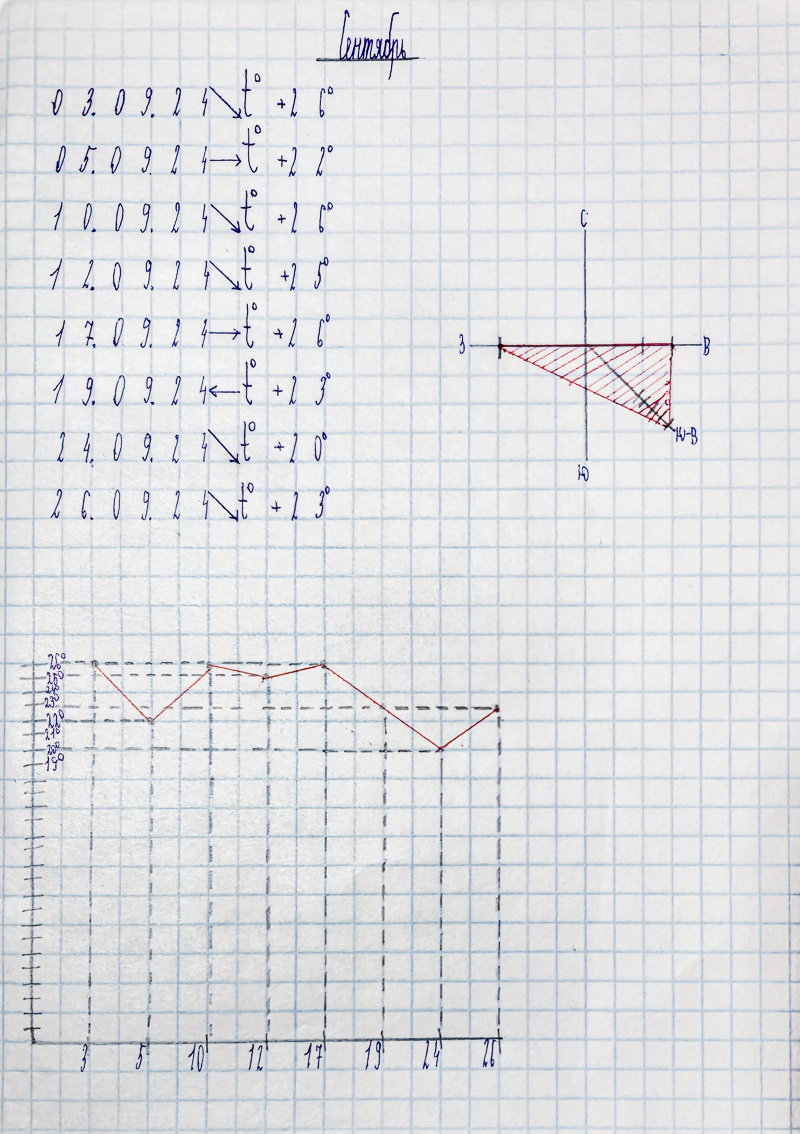 Сентябрь
03.09.24↘t° +26°
05.09.24→t° +22°
10.09.24↘t° +26°
12.09.24↘t° +25°
17.09.24→t° +26°
19.09.24←t° +23°
24.09.24↘t° +20°
26.09.24↘t° +23°
С
З
В
Ю-В
Ю
26°
25°
24°
23°
22°
21°
20°
19°
3 5 10 12 17 19 24 26